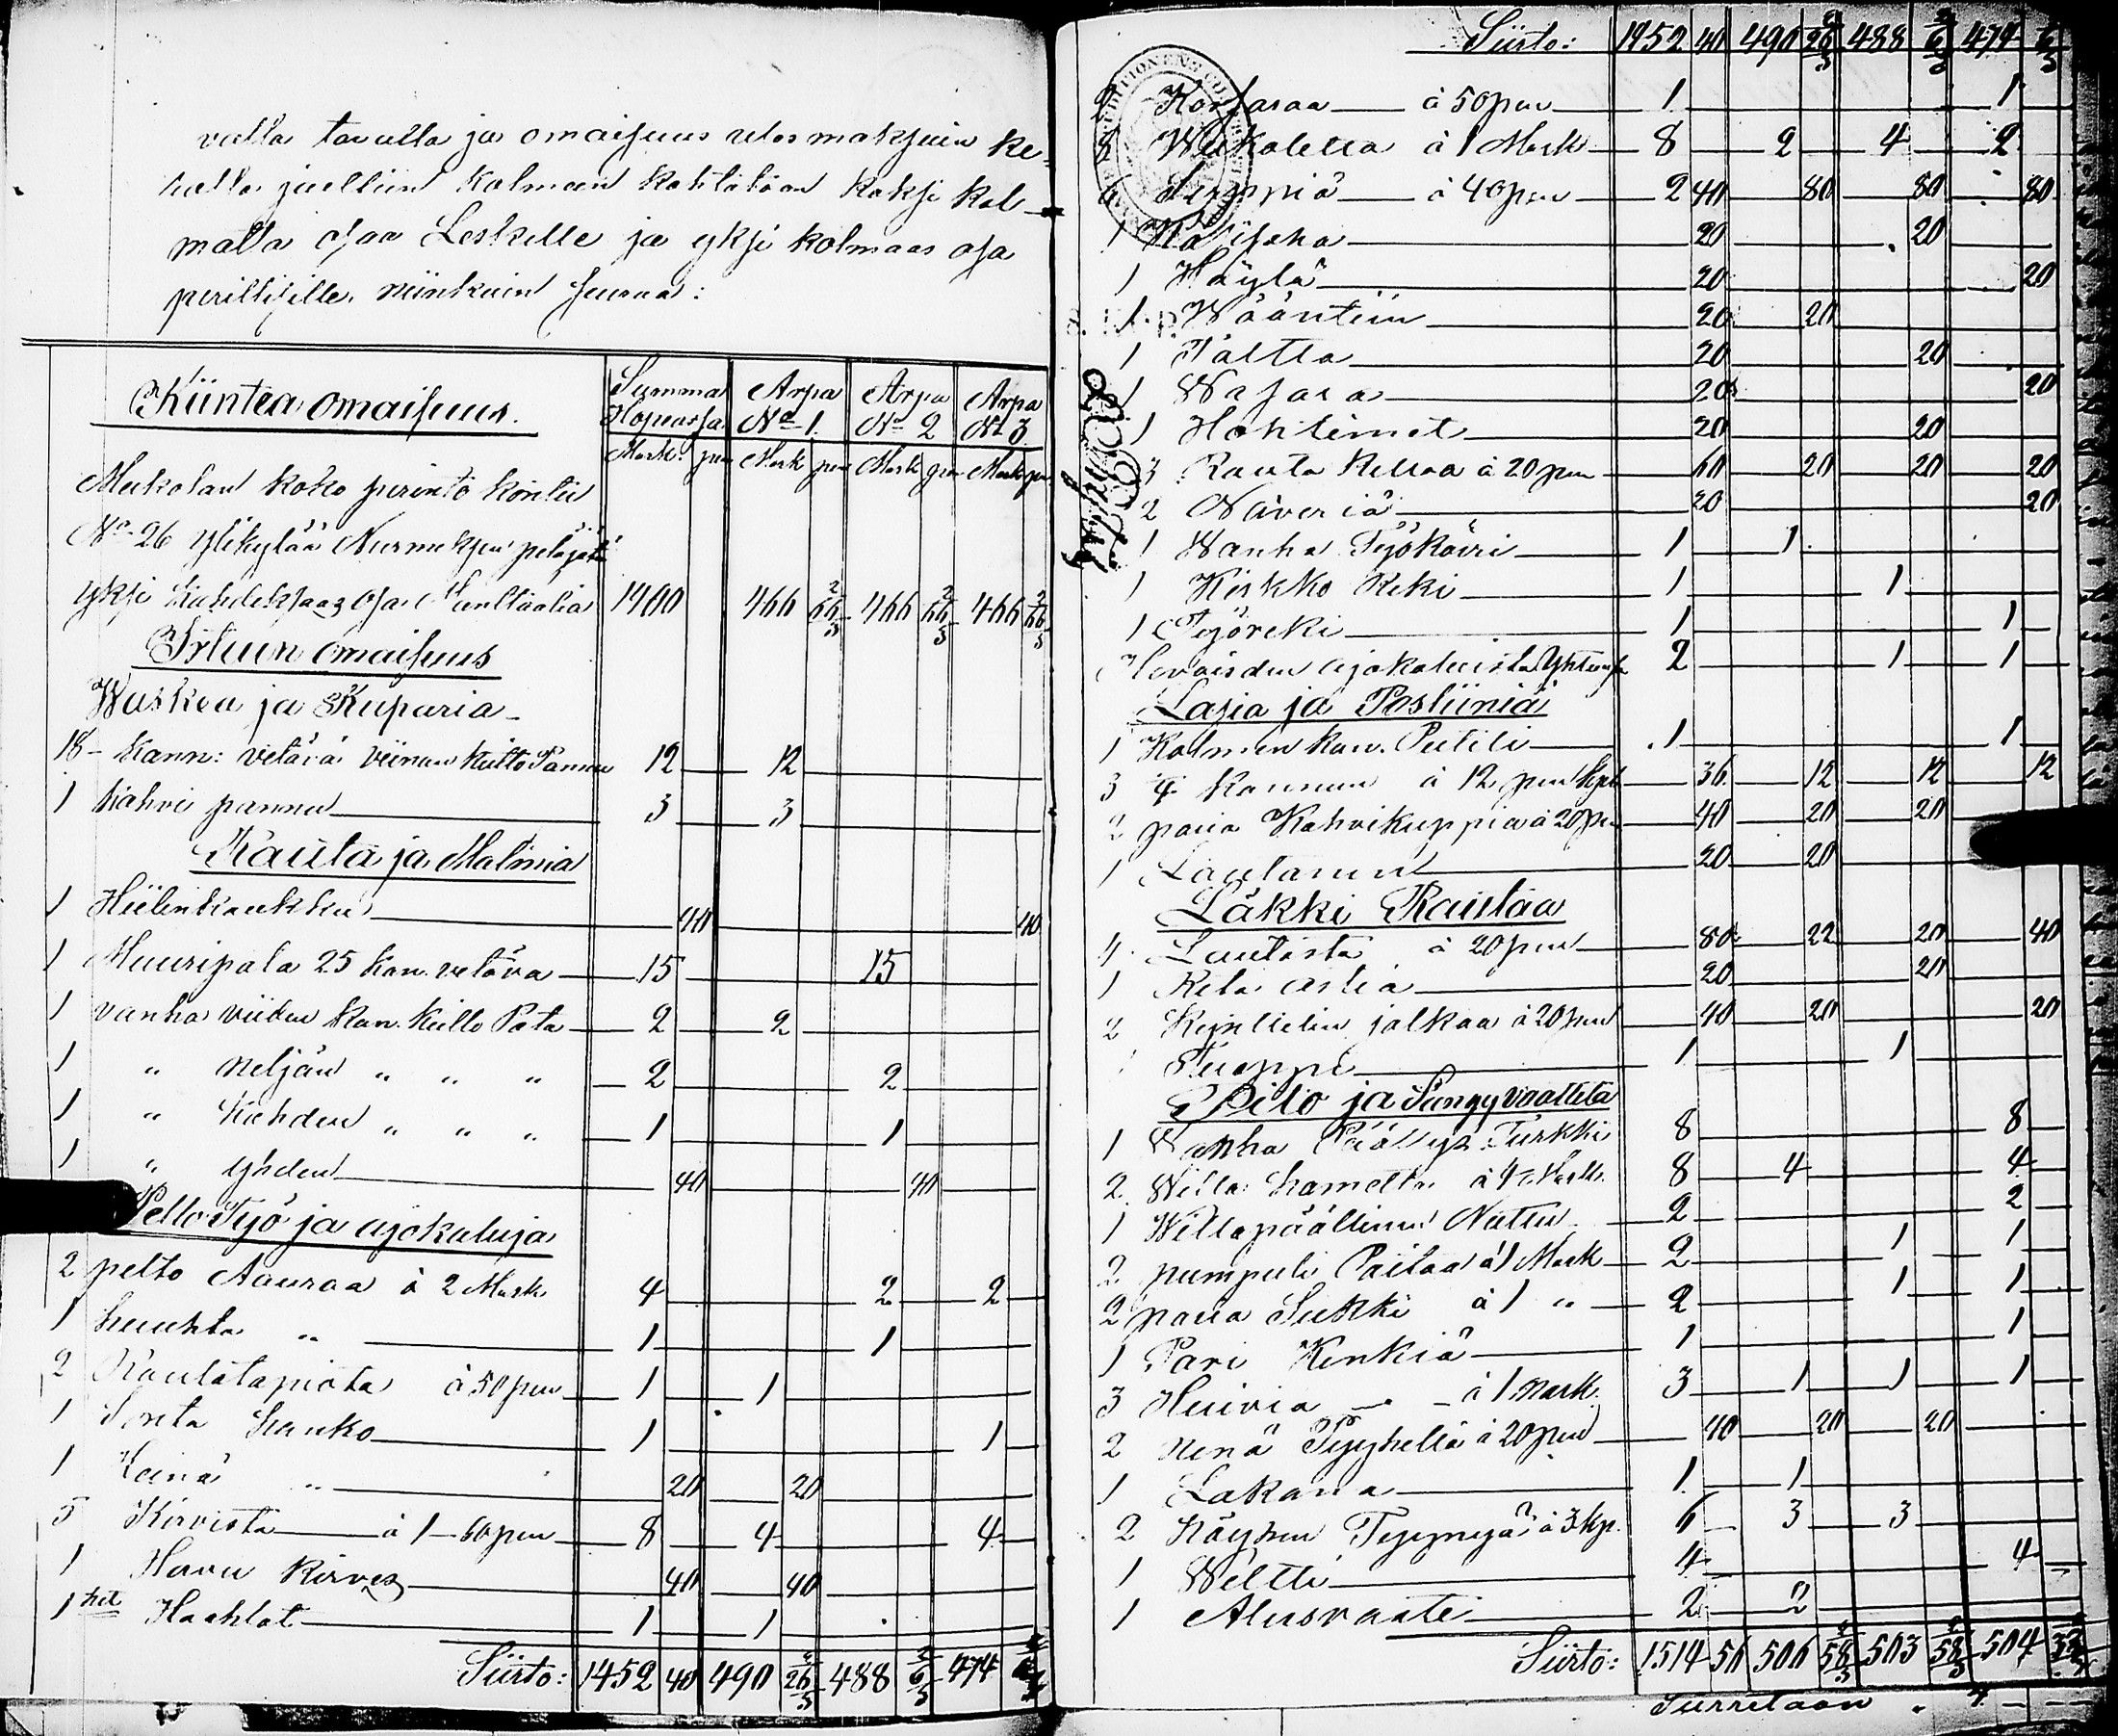 vulla tavalla ja omaisuus ulosmaksuin ke-
halla jaettiin kolmeen kohtalaan kaksi kol-
matta osaa Leskelle ja yksi kolmaas osa
perillisille, niinkuin seuraa:
Kiintea omaisuus. Summa Hopeassa Arpa No 1. Arpa No 2 Arpa No 3.
Mark. pen Mark pen Mark pen Mark pen
koko perintö kontii
No 26 ylikylää Nurmeksen pitäjätä
yksi kahdeksaas osa Manttaalia 1400 466 66 2/3 466 66 2/3 466 66 2/3
Irtuun omaisuus
Waskea ja Kuparia
18 - kann: vetävä viinan keitto Pannu 12 12
1 kahvi pannu 3 3
Rauta ja Malmia
1 Hiilinkoukku 40 40
1 Muuripata 25 kan. vetävä 15 15
1 vanha viiden kan. keitto Pata 2 2
1 " neljän " " " 2 2
1 " kahden " " " 1 1
1 " yhden 40 40
Pelto Työ ja ajokaluja
2 pelto Aauraa à 2 Mark 4 2 2
1 kuuhta " 1 1
2 Rautatapiota à 50 pen 1 1
1 Sonta hanko 1 1
1 Heinä " 20 20
5 Kirvistä à 1-60 pen 8 4 4
1 Havu kirves 40 40
1 Haahlat 1 1
Siirto: 1452 40 490 26 2/3 488 6 2/3 474 6 2/3
Siirto: 1452 40 490 26 2/3 488 6 2/3 474 6 2/3
2 à 50 pen 1 1
8 Wiikatetta à 1 Mark 8 2 4 2
6 Sirppiä à 40 pen 2 40 80 80 80
1 Käsisaha 20 20
1 Höylä 20 20
1 Wääntiin 20 20
1 Taltta 20 20
1 Wasara 20 20
1 Hohtimet 20 20
3 Rauta à 20 pen 60 20 20 20
2 Näveriä 20 20
1 Wanha Työkärri 1 1
1 Kirkko Reki 1 1
1 Työreki 1 1
Hevoisden ajokaluista Yhteensä 2 1 1
Lasia ja Posliinia
1 Kolmen kan. Puteli 1 1
3 4 kannun à 12 pen kpl 36 12 12 12
2 paria Kahvikuppia à 20 pen 40 20 20
1 Lautanen 20 20
Läkki Rautaa
4 Lautasta à 20 pen 80 22 20 40
1 astia 20 20
2 Kynttelin jalkaa à 20 pen 40 20 20
1 1 1
Pito ja Sängyvaatteita
1 Wanha Päällys Turkki 8 8
2 Willa hametta à 4 Mark. 8 4 4
1 Willapäällinen Nuttu 2 2
2 pumpuli Paitaa à 1 Mark 2 1 1
2 paria Sukki à 1 " 2 1 1
1 Pari Kenkiä 1 1
3 Huivia à 1 Mark. 3 1 1 1
2 Nenä Pyyhettä à 20 pen 40 20 20
1 Lakana 1 1
2 höyhen Tyynyä à 3 kp. 6 3 3
1 Weltti 4 4
1 Alusvaate 2 2
Siirto: 1514 56 506 58 2/3 503 58 2/3 504
Siirretään